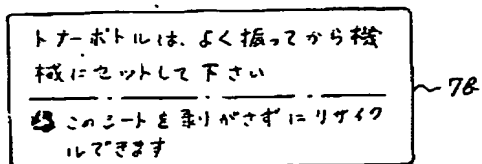 トナーボトルは、よく振ってから機
械にセットして下さい
このシートを剥がさずにリサイク
ルできます
~78